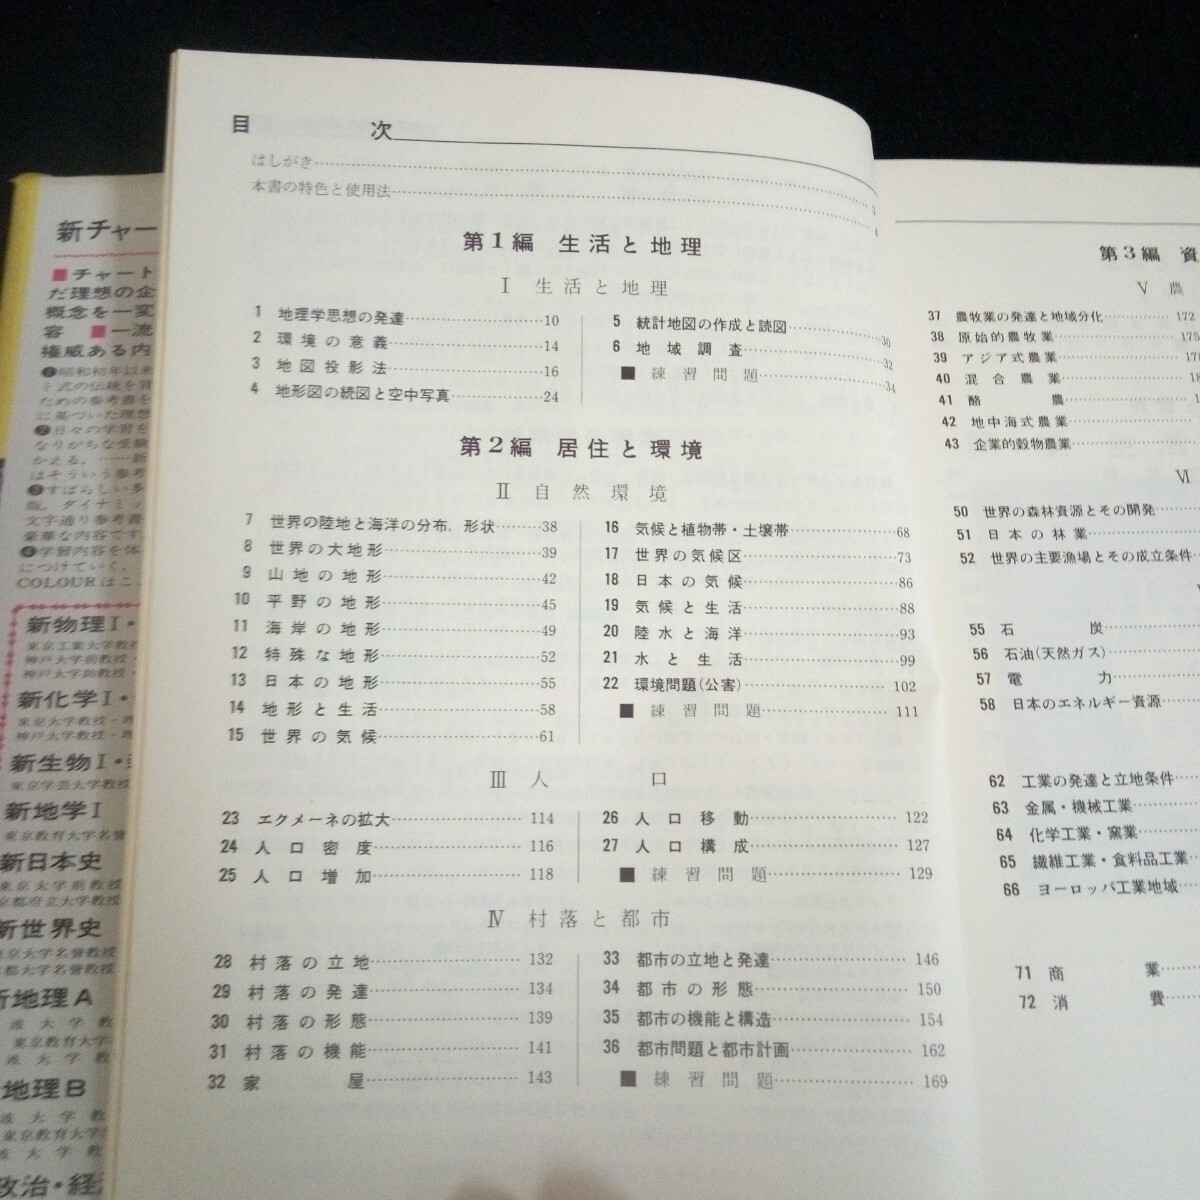 目 次
はしがき 3
本書の特色と使用法 4
第1編 生活と地理
Ⅰ 生活と地理
1 地理学思想の発達 10
2 環境の意義 14
3 地図投影法 16
4 地形図の続図と空中写真 24
5 統計地図の作成と読図 30
6 地域調査 32
■ 練習問題 34
第2編 居住と環境
Ⅱ 自然環境
7 世界の陸地と海洋の分布，形状 38
8 世界の大地形 39
9 山地の地形 42
10 平野の地形 45
11 海岸の地形 49
12 特殊な地形 52
13 日本の地形 55
14 地形と生活 58
15 世界の気候 61
16 気候と植物帯・土壌帯 68
17 世界の気候区 73
18 日本の気候 86
19 気候と生活 88
20 陸水と海洋 93
21 水と生活 99
22 環境問題(公害) 102
■ 練習問題 111
Ⅲ 人口
23 エクメーネの拡大 114
24 人口密度 116
25 人口増加 118
26 人口移動 122
27 人口構成 127
■ 練習問題 129
Ⅳ 村落と都市
28 村落の立地 132
29 村落の発達 134
30 村落の形態 139
31 村落の機能 141
32 家屋 143
33 都市の立地と発達 146
34 都市の形態 150
35 都市の機能と構造 154
36 都市問題と都市計画 162
■ 練習問題 169
第3編 資
Ⅴ 農
37 農牧業の発達と地域分化 172
38 原始的農牧業 175
39 アジア式農業
40 混合農業
41 酪農
42 地中海式農業
43 企業的穀物農業
Ⅵ
50 世界の森林資源とその開発
51 日本の林業
52 世界の主要漁場とその成立条件
55 石炭
56 石油(天然ガス)
57 電力
58 日本のエネルギー資源
62 工業の発達と立地条件
63 金属・機械工業
64 化学工業・窯業
65 繊維工業・食料品工業
66 ヨーロッパ工業地域
71 商業
72 消費
新チャー
■チャート
だ理想の企
概念を一変
容 ■一流
権威ある内
❶昭和初年以来
ト式の伝統を質
ための参考書を
に基づいた理想
❷日々の学習を
なりがちな受験
かえる。……新
はそういう参考
❸すばらしい多
版，ダイナミッ
文字通り参考書
豪華な内容です
❹学習内容を体
につけていく。
COLOURはこ
新物理Ⅰ・
東京工業大学教授
神戸大学前教授・
神戸大学助教授・
新化学Ⅰ・
東京大学教授・理
神戸大学教授・理
新生物Ⅰ・
東京学芸大学教授
新地学Ⅰ
東京教育大学名誉
新日本史
東京大学前教授
京都府立大学教授
新世界史
東京大学名誉教授
京都大学名誉教授
新地理A
波大学教
東京教育大学
波大学教
地理B
波大学教
東京教育大学
波大学教
政治・経済